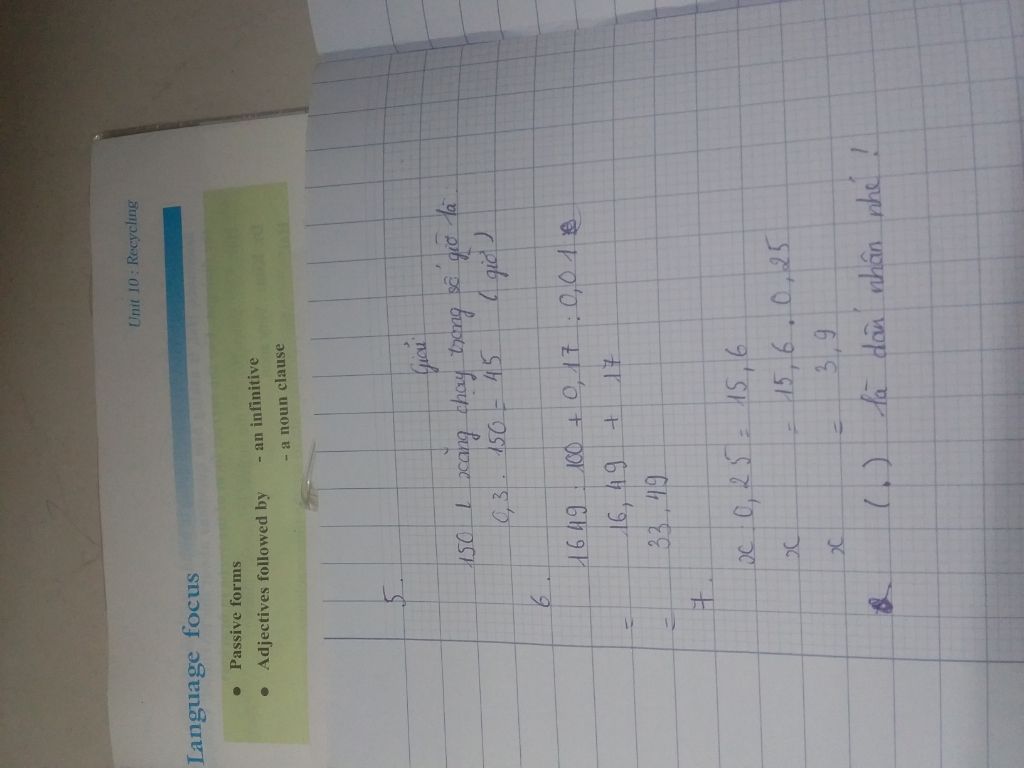 Unit 10 : Recycling
Language focus
• Passive forms
• Adjectives followed by - an infinitive
- a noun clause
5.
Giải
150 l xăng chạy trong số giờ là
0,3 . 150 = 45 ( giờ )
6.
1649 : 100 + 0,17 : 0,01
= 16,49 + 17
= 33,49
7.
x : 0,25 = 15,6
x = 15,6 . 0,25
x = 3,9
(.) là dấu nhân nhé !